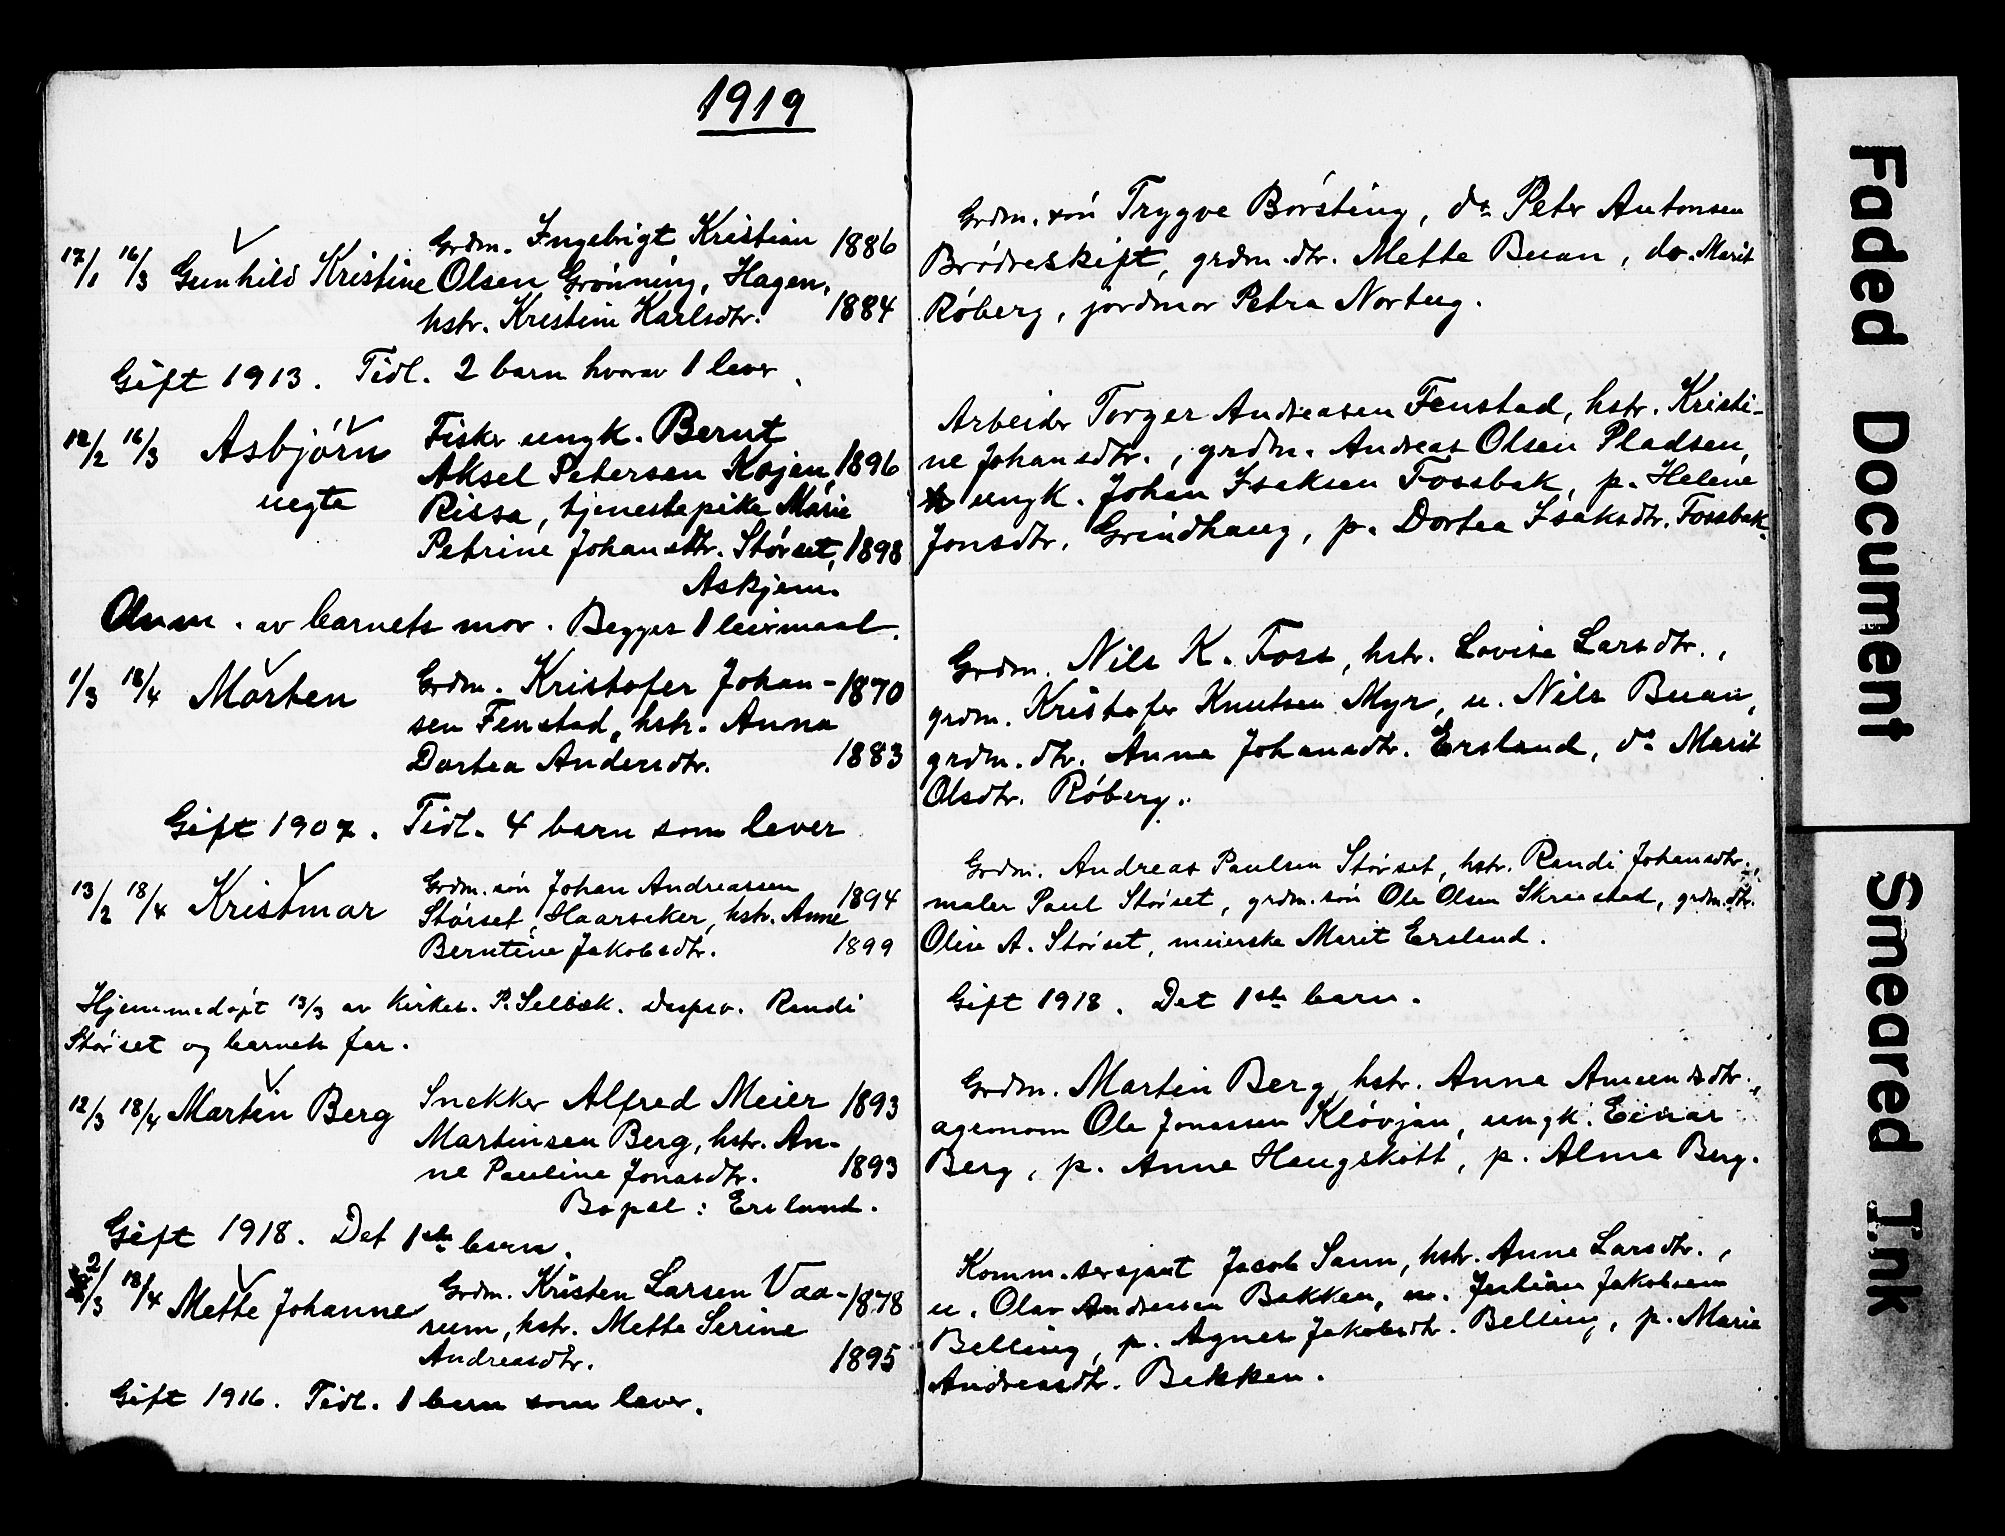 1919
17/1 16/3 Gunhild Kristine
Grdm. Ingebrigt Kristian 1886
Olsen Grønning, Hagen,
hstr. Kristine Karlsdtr. 1884
Gift 1913. Tidl. 2 barn hvorav 1 lever.
Grdm. søn Trygve Børsting, do Peter Antonsen
Brødreskift, grdm. dtr. Mette Buan, do. Marit
Røberg, jordmor Petra Nortug.
12/2 16/3 Asbjørn
uegte
Fisker ungk. Bernt
Aksel Petersen Kojen, 1896
Rissa, tjenestepike Marie
Petrine Johansdtr. Størset, 1898
Askjem.
Anm. av barnets mor. Begges 1 leiermaal.
Arbeider Torger Andreasen Fenstad, hstr. Kristi-
ne Johansdtr., grdm. Andreas Olsen Pladsen,
ungk. Johan Isaksen Fossbak, p. Helene
Jonsdtr. Grindhaug, p. Dortea Isaksdtr. Fossbak.
1/3 18/4 Morten
Grdm. Kristofer Johan- 1870
sen Fenstad, hstr. Anna
Dortea Andersdtr. 1883
Gift 1907. Tidl. 4 barn som lever
Grdm. Nils K. Foss, hstr. Lovise Larsdtr.,
grdm. Kristofer Knutsen Myr, u. Nils Buan,
grdm. dtr. Anna Johansdtr. Ersland, do Marit
Olsdtr. Røberg.
13/2 18/4 Kristmar
Grdm. søn Johan Andreassen 1894
Størset, Haarseker, hstr. Anne
Berntine Jakobsdtr. 1899
Hjemmedøpt 13/3 av kirkes. P. Selbek. Dapsv. Randi
Størset og barnets far.
Grdm. Andreas Paulsen Størset, hstr. Randi Johansdtr.,
maler Paul Størset, grdm. søn Ole Olsen Skraastad, grdm. dtr.
Oline A. Størset, meierske Marit Ersland.
Gift 1918. Det 1ste barn.
12/3 18/4 Martin Berg
Snekker Alfred Meier 1893
Martinsen Berg, hstr. An-
ne Pauline Jonasdtr. 1893
Bopel: Ersland.
Gift 1918. Det 1ste barn.
Grdm. Martin Berg, hstr. Anna Amundsdtr.,
agronom Ole Jonassen Kløvjan, ungk. Einar
Berg, p. Anne Haugskott, p. Alma Berg.
2/3 18/4 Mette Johanne
Grdm. Kristen Larsen Vaa- 1878
rum, hstr. Mette Serine
Andreasdtr. 1895
Gift 1916. Tidl. 1 barn som lever.
Komm. sersjant Jacob Sann, hstr. Anne Larsdtr.,
u. Olav Andreasen Bekken, u. Julian Jakobsen
Belling, p. Agnes Jakobsdtr. Belling, p. Marie
Andreasdtr. Bekken.
Faded Document
Smeared Ink